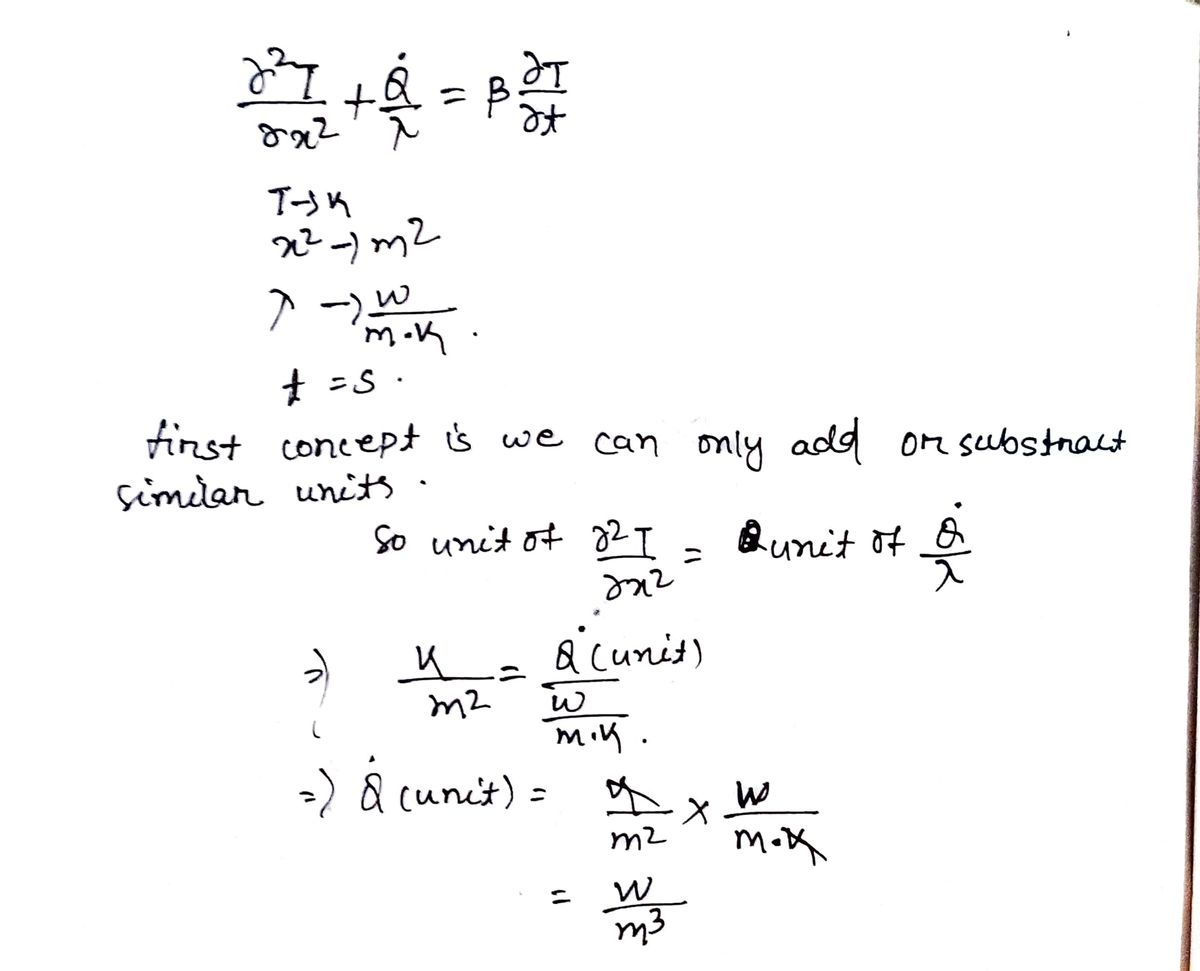 ∂²T/∂x² + Q̇/λ = β ∂T/∂t
T → K
x² → m²
λ → W/m·K .
t = s .
first concept is we can only add or substract
similar units .
So unit of ∂²T/∂x² = unit of Q̇/λ
⇒ K/m² = Q̇ (unit)/(W/m·K) .
⇒ Q̇ (unit) = K/m² × W/m·K
= W/m³